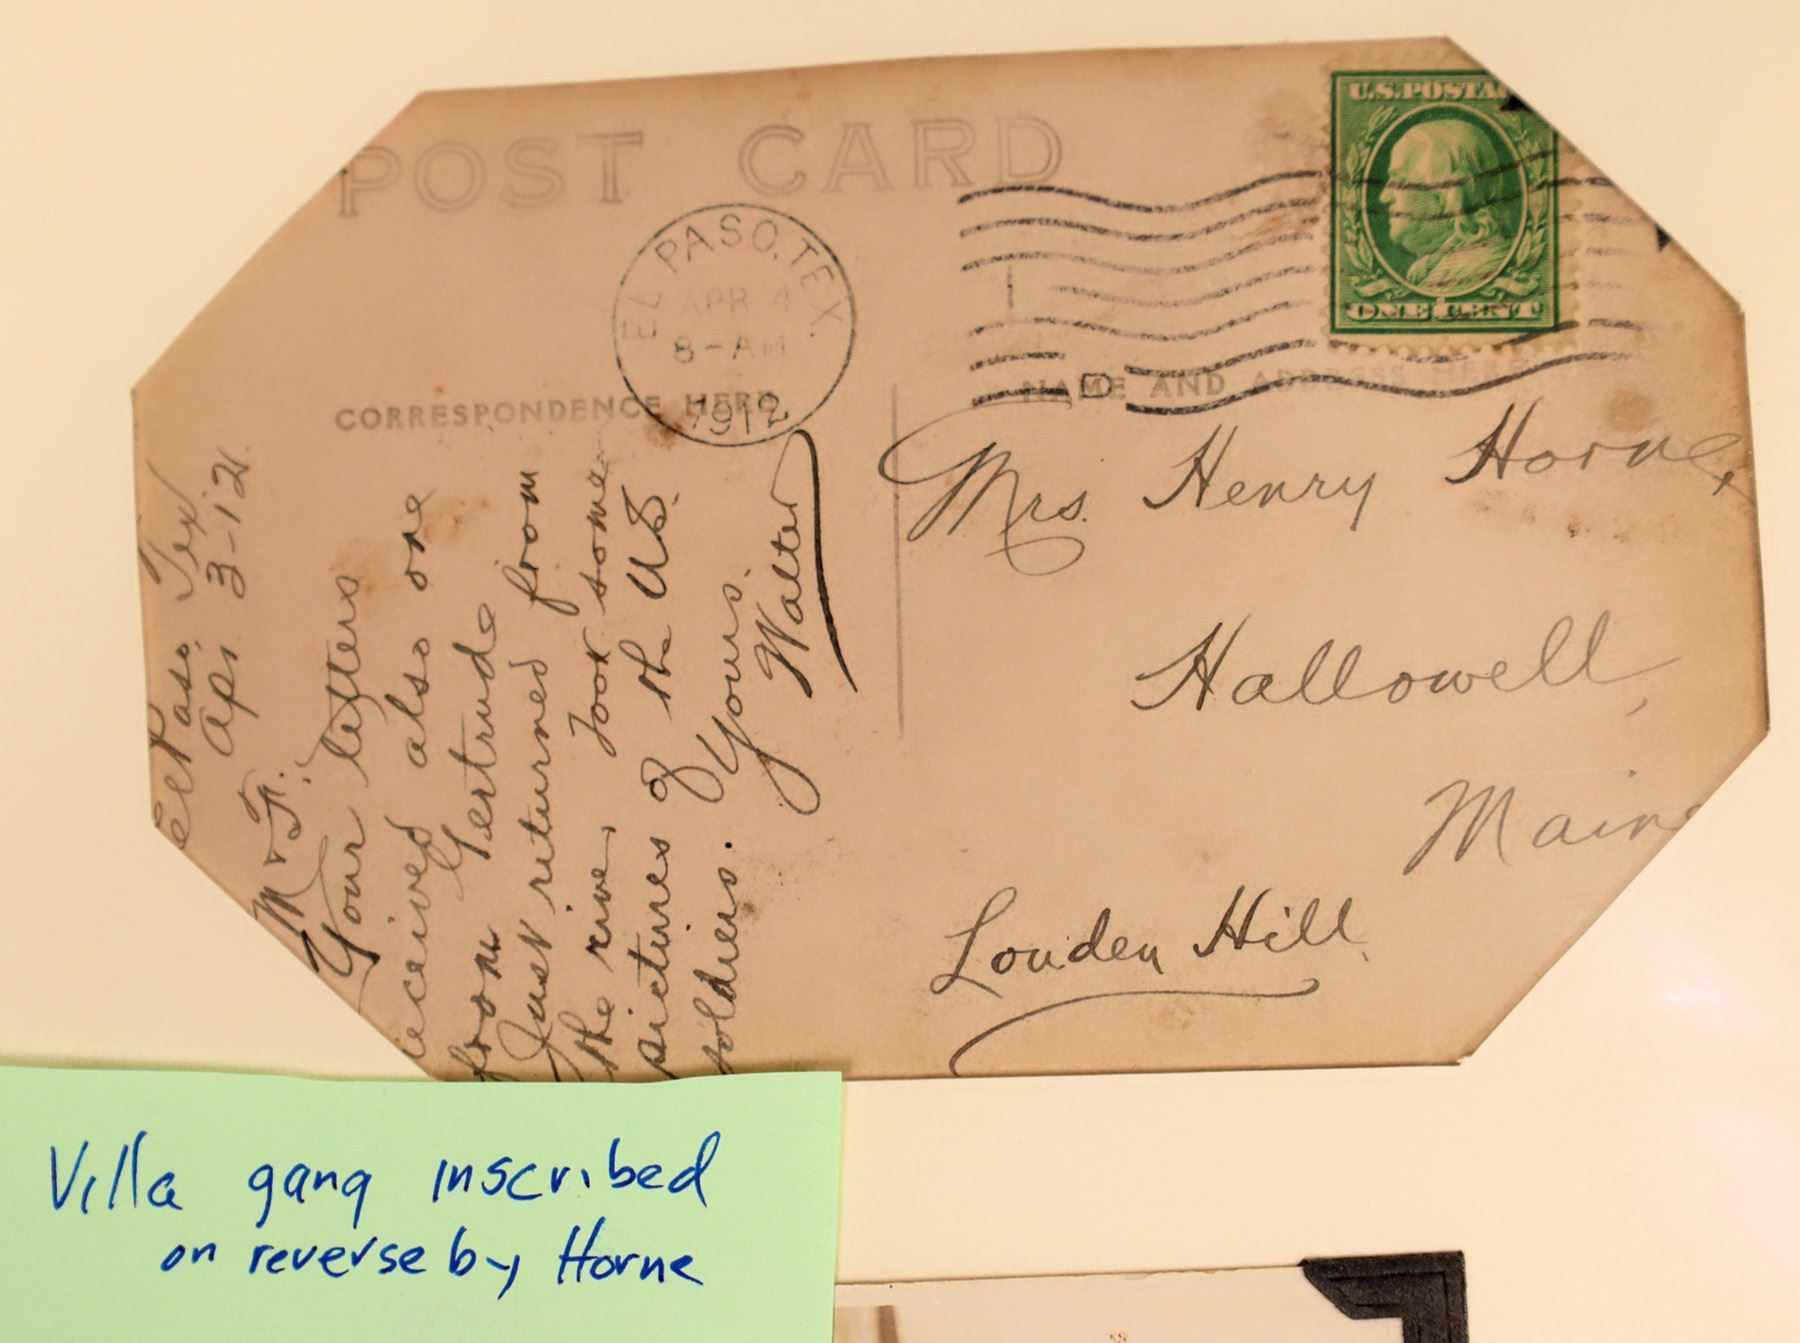 POST CARD
U.S.POSTA
ONE CENT
EL PASO, TEX.
APR 4
8-AM
1912
D
CORRESPONDENCE HERE
NAME AND ADDRESS HERE
El Paso Tex
Apr 3-12.
M & F.
Your letters
received also one
from Gertrude
Just returned from
the river, Took some
pictures of the U.S.
soldiers. Yours.
Walter
Mrs. Henry Horne,
Hallowell,
Maine
Louden Hill.
Villa gang inscribed
on reverse by Horne